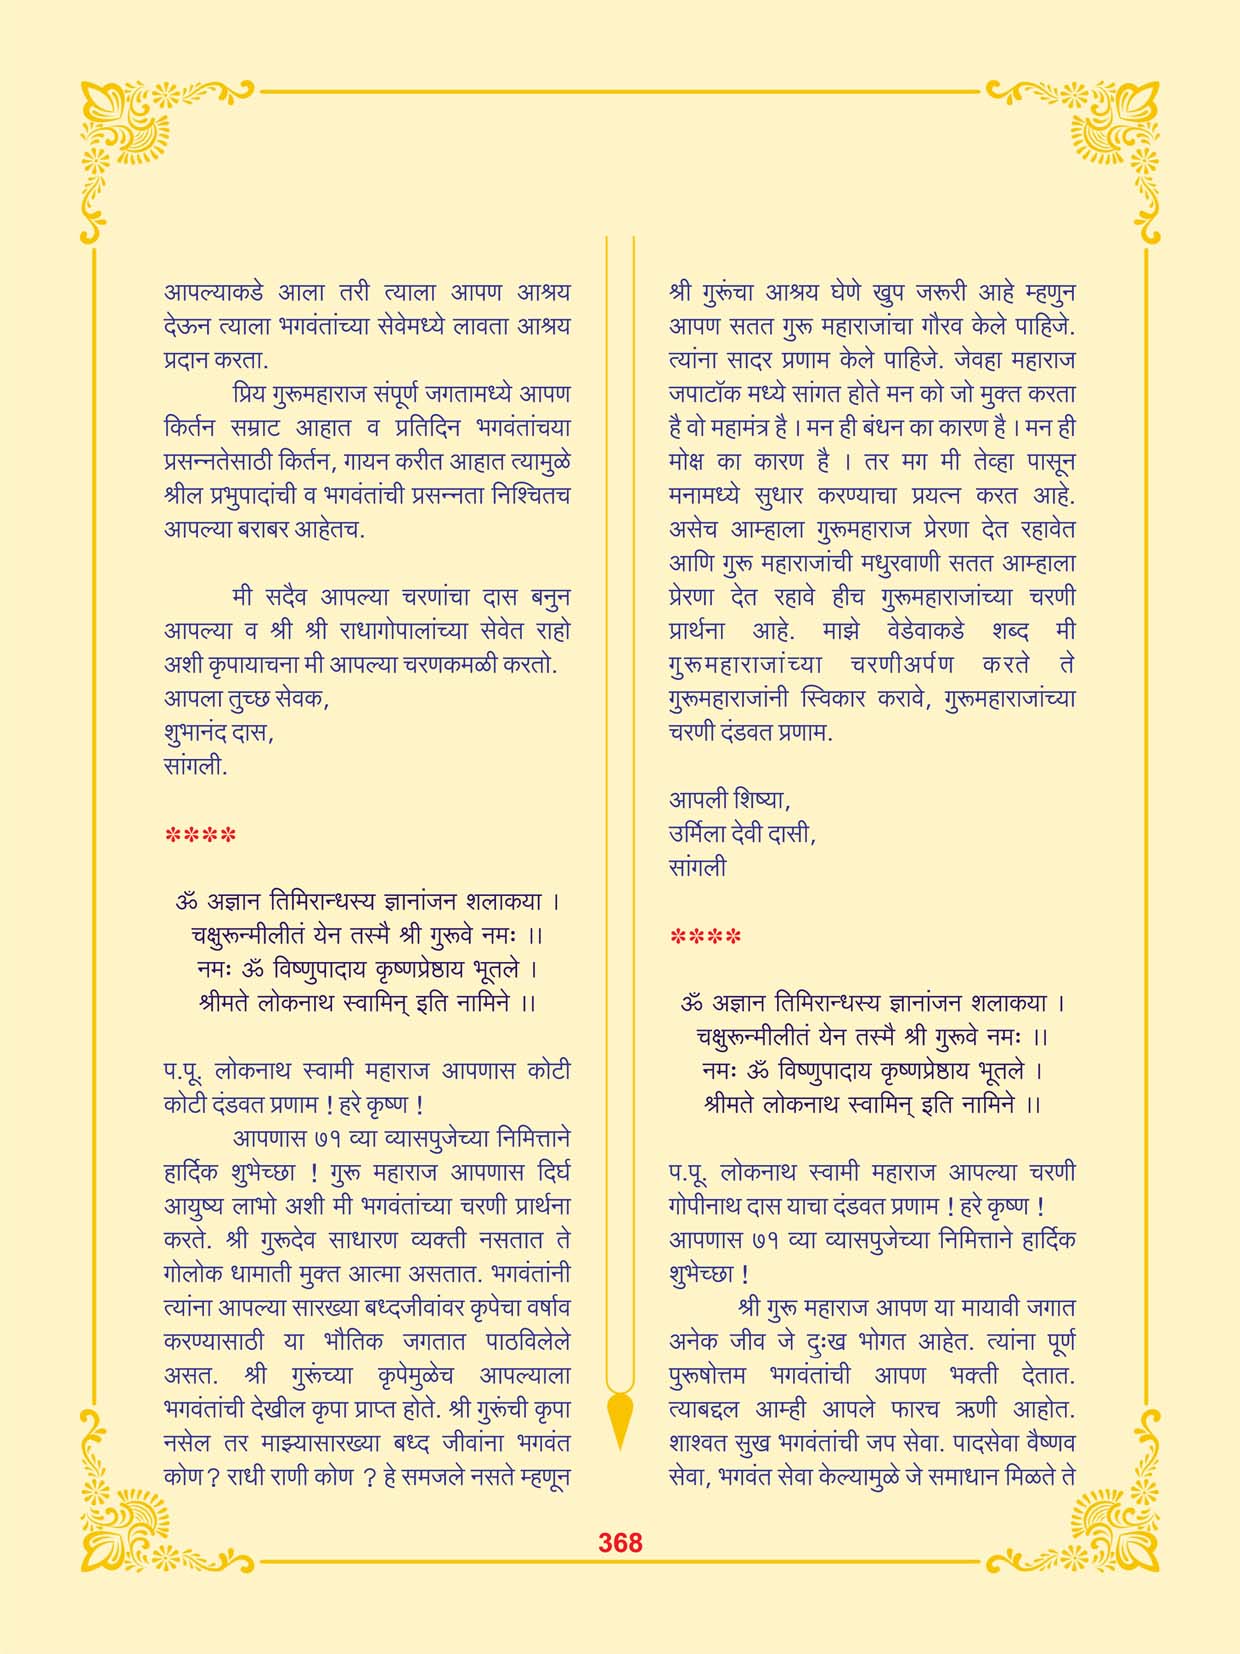 आपल्याकडे आला तरी त्याला आपण आश्रय
देऊन त्याला भगवंतांच्या सेवेमध्ये लावता आश्रय
प्रदान करता.
प्रिय गुरूमहाराज संपूर्ण जगतामध्ये आपण
किर्तन सम्राट आहात व प्रतिदिन भगवंतांचया
प्रसन्नतेसाठी किर्तन, गायन करीत आहात त्यामुळे
श्रील प्रभुपादांची व भगवंतांची प्रसन्नता निश्चितच
आपल्या बराबर आहेतच.
मी सदैव आपल्या चरणांचा दास बनुन
आपल्या व श्री श्री राधागोपालांच्या सेवेत राहो
अशी कृपायाचना मी आपल्या चरणकमळी करतो.
आपला तुच्छ सेवक,
शुभानंद दास,
सांगली.
****
ॐ अज्ञान तिमिरान्धस्य ज्ञानांजन शलाकया ।
चक्षुरून्मीलीतं येन तस्मै श्री गुरूवे नमः ।।
नमः ॐ विष्णुपादाय कृष्णप्रेष्ठाय भूतले ।
श्रीमते लोकनाथ स्वामिन् इति नामिने ।।
प.पू. लोकनाथ स्वामी महाराज आपणास कोटी
कोटी दंडवत प्रणाम ! हरे कृष्ण !
आपणास ७१ व्या व्यासपुजेच्या निमित्ताने
हार्दिक शुभेच्छा ! गुरू महाराज आपणास दिर्घ
आयुष्य लाभो अशी मी भगवंतांच्या चरणी प्रार्थना
करते. श्री गुरूदेव साधारण व्यक्ती नसतात ते
गोलोक धामाती मुक्त आत्मा असतात. भगवंतांनी
त्यांना आपल्या सारख्या बध्दजीवांवर कृपेचा वर्षाव
करण्यासाठी या भौतिक जगतात पाठविलेले
असत. श्री गुरूंच्या कृपेमुळेच आपल्याला
भगवंतांची देखील कृपा प्राप्त होते. श्री गुरूंची कृपा
नसेल तर माझ्यासारख्या बध्द जीवांना भगवंत
कोण? राधी राणी कोण ? हे समजले नसते म्हणून
श्री गुरूंचा आश्रय घेणे खुप जरूरी आहे म्हणुन
आपण सतत गुरू महाराजांचा गौरव केले पाहिजे.
त्यांना सादर प्रणाम केले पाहिजे. जेवहा महाराज
जपाटॉक मध्ये सांगत होते मन को जो मुक्त करता
है वो महामंत्र है । मन ही बंधन का कारण है । मन ही
मोक्ष का कारण है । तर मग मी तेव्हा पासून
मनामध्ये सुधार करण्याचा प्रयत्न करत आहे.
असेच आम्हाला गुरूमहाराज प्रेरणा देत रहावेत
आणि गुरू महाराजांची मधुरवाणी सतत आम्हाला
प्रेरणा देत रहावे हीच गुरूमहाराजांच्या चरणी
प्रार्थना आहे. माझे वेडेवाकडे शब्द मी
गुरूमहाराजांच्या चरणीअर्पण करते ते
गुरूमहाराजांनी स्विकार करावे, गुरूमहाराजांच्या
चरणी दंडवत प्रणाम.
आपली शिष्या,
उर्मिला देवी दासी,
सांगली
****
ॐ अज्ञान तिमिरान्धस्य ज्ञानांजन शलाकया ।
चक्षुरून्मीलीतं येन तस्मै श्री गुरूवे नमः ।।
नमः ॐ विष्णुपादाय कृष्णप्रेष्ठाय भूतले ।
श्रीमते लोकनाथ स्वामिन् इति नामिने ।।
प.पू. लोकनाथ स्वामी महाराज आपल्या चरणी
गोपीनाथ दास याचा दंडवत प्रणाम ! हरे कृष्ण !
आपणास ७१ व्या व्यासपुजेच्या निमित्ताने हार्दिक
शुभेच्छा !
श्री गुरू महाराज आपण या मायावी जगात
अनेक जीव जे दुःख भोगत आहेत. त्यांना पूर्ण
पुरूषोत्तम भगवंतांची आपण भक्ती देतात.
त्याबद्दल आम्ही आपले फारच ऋणी आहोत.
शाश्वत सुख भगवंतांची जप सेवा. पादसेवा वैष्णव
सेवा, भगवंत सेवा केल्यामुळे जे समाधान मिळते ते
368